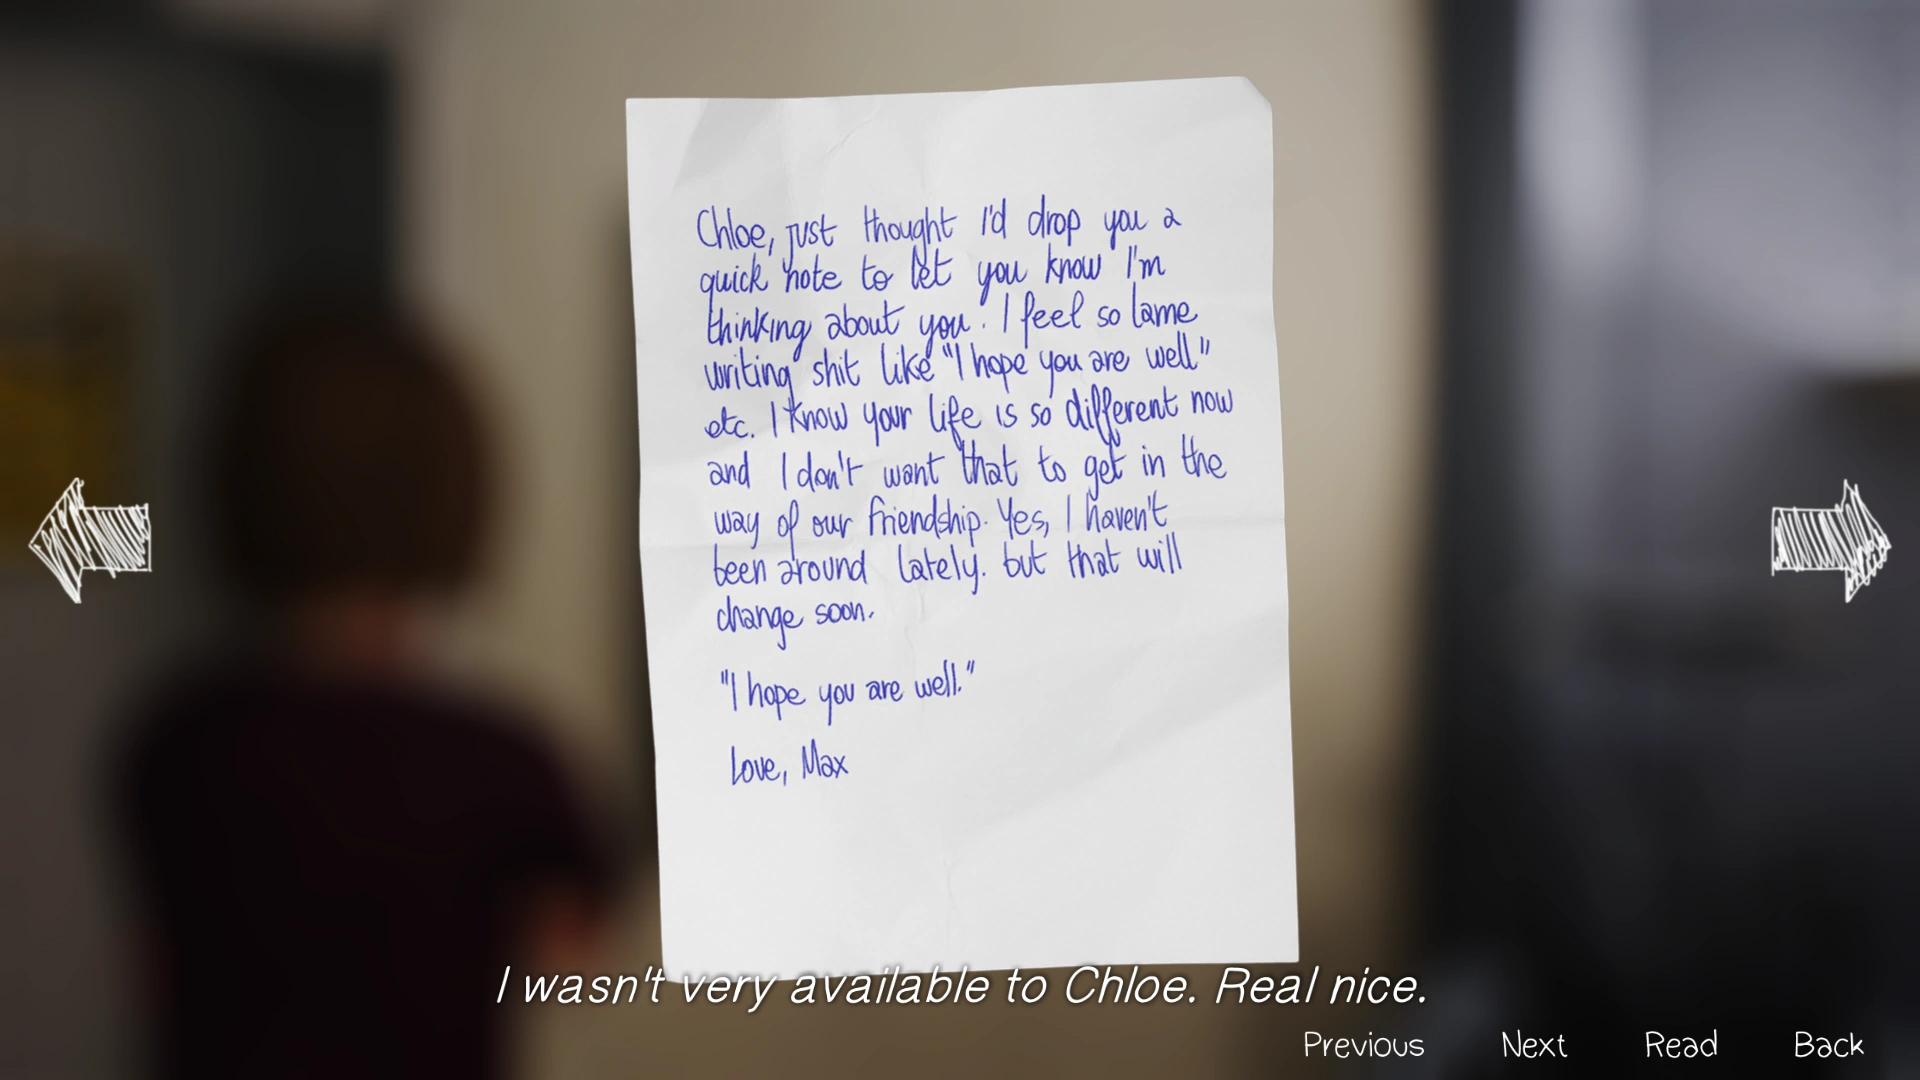 Chloe, just thought I'd drop you a
quick note to let you know I'm
thinking about you. I feel so lame
writing shit like "I hope you are well"
etc. I know your life is so different now
and I don't want that to get in the
way of our friendship. Yes, I haven't
been around lately. but that will
change soon.
"I hope you are well."
Love, Max
I wasn't very available to Chloe. Real nice.
Previous Next Read Back